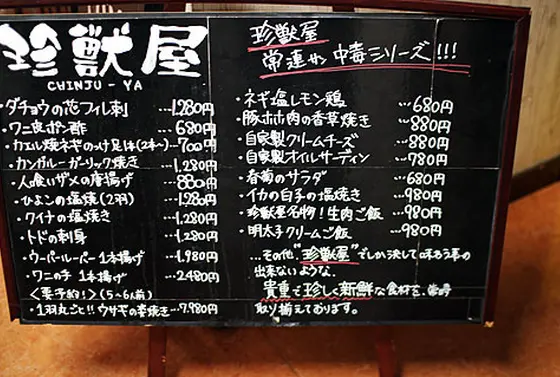 珍獣屋
CHINJU-YA
・ダチョウの花フィレ刺 …1,280円
・ワニ皮ポン酢 …680円
・カエル焼ネギのっけ足1本(2本〜)…700円
・カンガルーガーリック焼き …1,280円
・人喰いザメの唐揚げ …880円
・ひよこの塩焼(2羽) …1,280円
・クイナの塩焼き …1,280円
・トドの刺身 …1,280円
・ウーパールーパー 1本揚げ …1,980円
・ワニの手 1本揚げ …2,480円
〈要予約!〉(5〜6人前)
・1羽丸ごと!!ウサギの姿焼き…7,980円
珍獣屋
常連サン中毒シリーズ!!!
・ネギ塩レモン鶏 …680円
・豚ホホ肉の香草焼き …880円
・自家製クリームチーズ …880円
・自家製オイルサーディン …780円
・春菊のサラダ …680円
・イカの白子の塩焼き …980円
・珍獣屋名物!生肉ご飯 …980円
・明太子クリームご飯 …980円
…その他、"珍獣屋"でしか決して味わう事の
出来ないような、
貴重で珍しく新鮮な食材を、常時
取り揃えております。